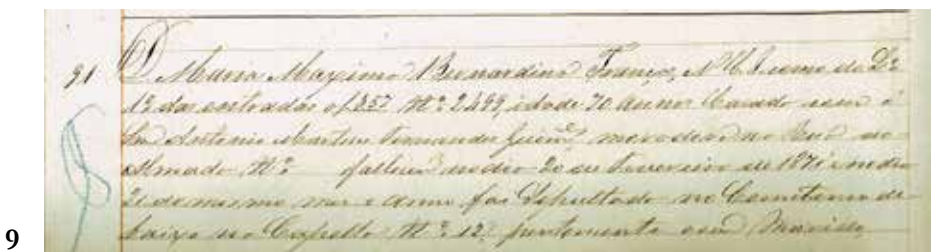 91 D. Maria Maxima Bernardina França, N.
19 das entradas a f. 257 Nº 2499, idade 70 annos Casada com o
Antonio Martins Fernandes moradora na Rua do
Almada Nº falleceu no dia 20 de Fevereiro de 187 e no dia
21 do mesmo mez e anno foi Sepultada no Cemiterio de
baixo na Capella Nº 12, juntamente com Marido
9